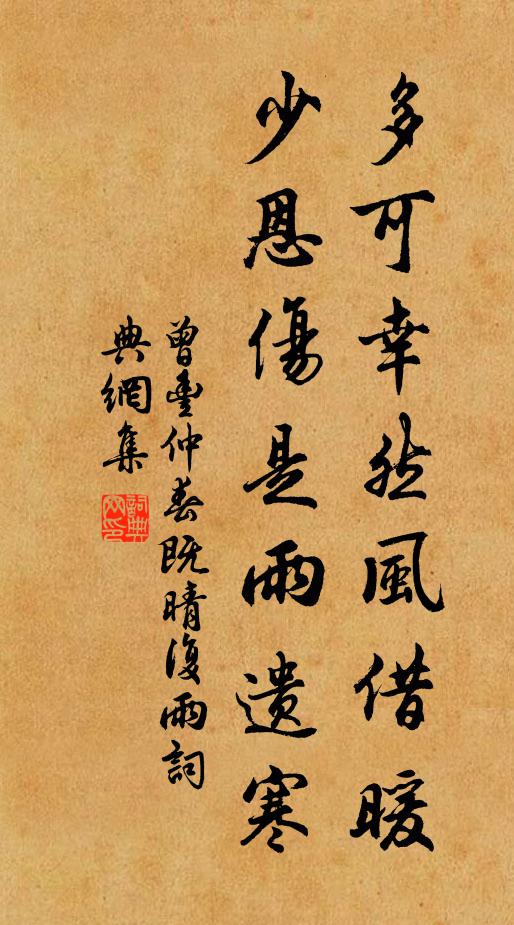 多可幸然風借暖
少恩傷是雨遺寒
曾豐仲春既晴復雨詞
典網集
詞典網印